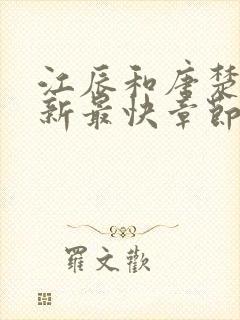 江辰和唐楚
新最快章節
羅文歡